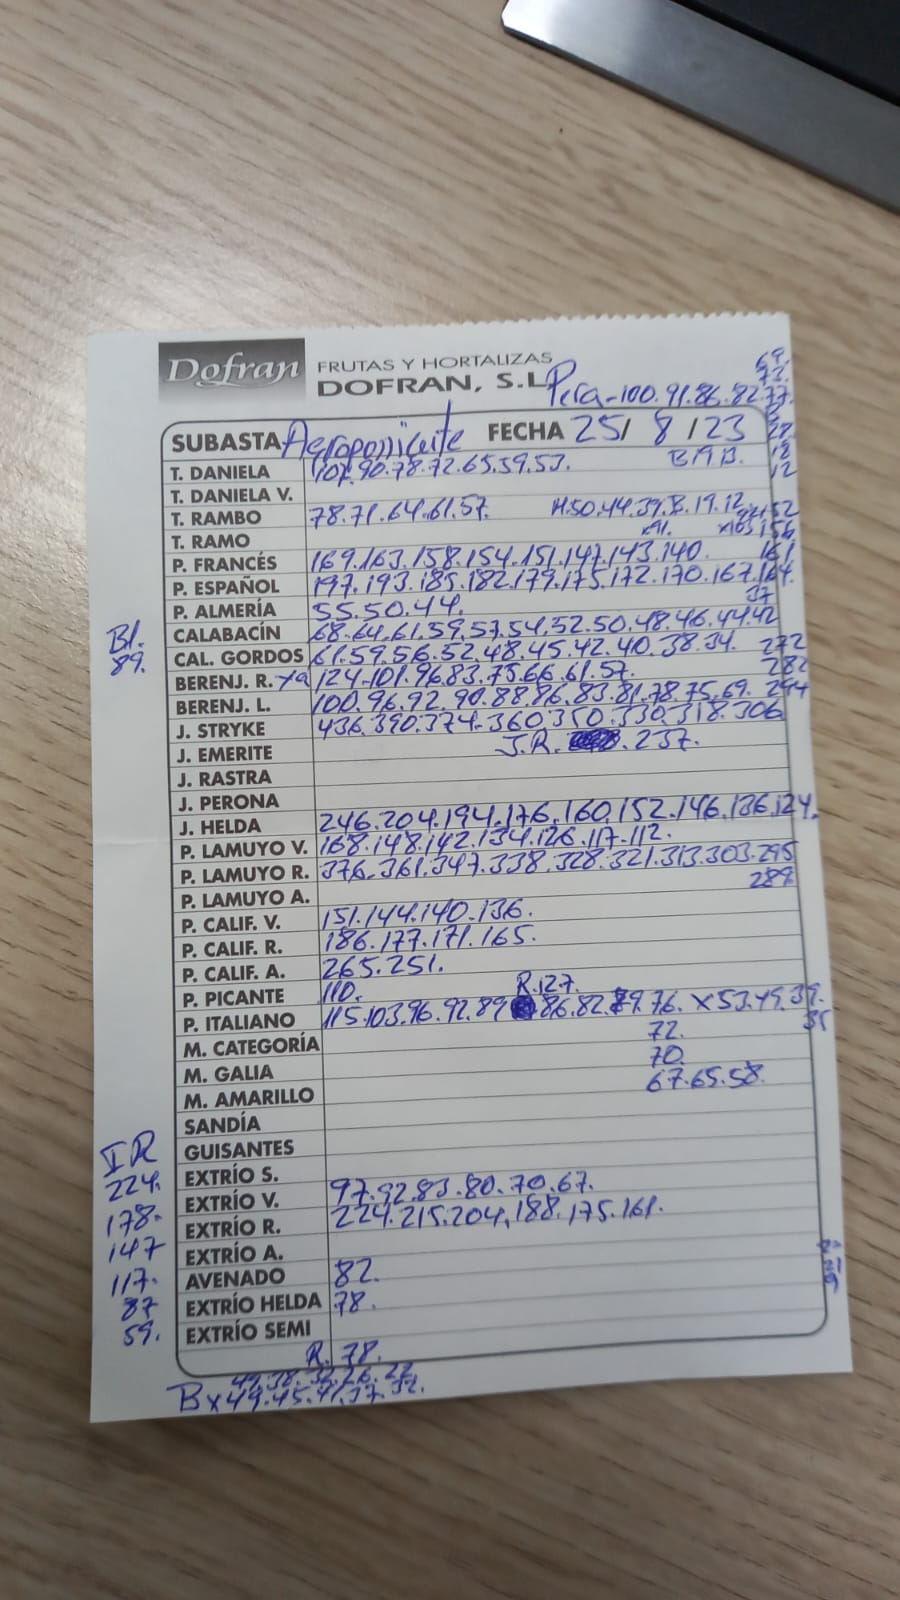 Dofran FRUTAS Y HORTALIZAS
DOFRAN, S.L.
Pera-100.91.86.82.77.
69.
73.
SUBASTA Agroponiente FECHA 25/ 8 /23
T. DANIELA 101.90.78.72.65.59.53. BAB.
12
T. DANIELA V.
T. RAMBO 78.71.64.61.57. H.50.44.39. .19.12.
T. RAMO x91. x103 156
P. FRANCÉS 169.163.158.154.151.147.143.140. 161
P. ESPAÑOL 197.193.185.182.179.175.172.170.167.164.
P. ALMERÍA 55.50.44. 37
CALABACÍN 68.64.61.59.57.54.52.50.48.46.44.42
Bl.
89.
CAL. GORDOS 61.59.56.52.48.45.42.40.38.34. 272
BERENJ. R. 124.101.96.83.75.66.61.57. 282
BERENJ. L. 100.96.92.90.88.86.83.81.78.75.69. 294
J. STRYKE 436.390.374.360.350.330.318.306
J. EMERITE J.R. .237.
J. RASTRA
J. PERONA
J. HELDA 246.204.194.176.160.152.146.136.124.
P. LAMUYO V. 168.148.142.134.126.117.112.
P. LAMUYO R. 376.361.347.338.328.321.313.303.295
P. LAMUYO A. 289
P. CALIF. V. 151.144.140.136.
P. CALIF. R. 186.177.171.165.
P. CALIF. A. 265.251.
P. PICANTE 110. R.127.
P. ITALIANO 115.103.96.92.89 86.82.79.76. x53.49.39.
35
M. CATEGORÍA 72.
M. GALIA 70.
M. AMARILLO 67.65.58.
SANDÍA
GUISANTES
IR
224.
178.
147
117.
87
59.
EXTRÍO S.
EXTRÍO V. 97.92.83.80.70.67.
EXTRÍO R. 224.215.204.188.175.161.
EXTRÍO A.
AVENADO 82.
EXTRÍO HELDA 78.
EXTRÍO SEMI
R. 78.
49.38.32.26.22
B x49.45.41.37.32.